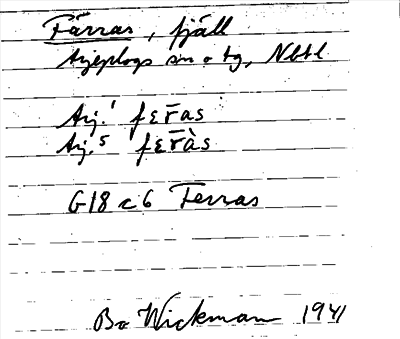 Färras, fjäll
Arjeplogs sn o tg, Nbtl
Arj.¹ fɛr̅as
Arj.⁵ fɛr̅às
G18 c6 Ferras
Bo Wickman 1941